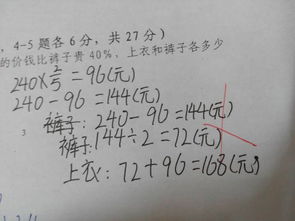 4-5题各6分，共27分）
的价钱比裤子贵40%，上衣和裤子各多少
240×2/5=96(元)
240-96=144(元)
裤子:240-96=144(元)
3
裤子:144÷2=72(元)
上衣:72+96=168(元)